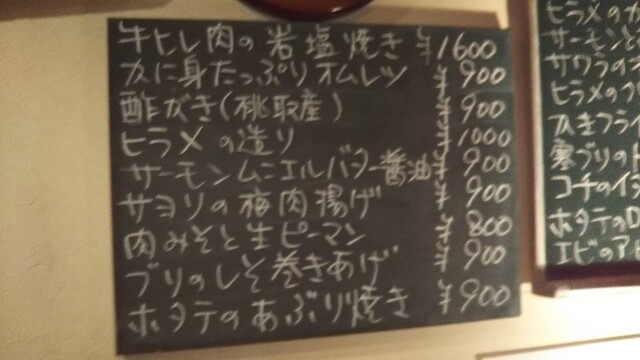 牛ヒレ肉の岩塩焼き ¥1600
カに身たっぷりオムレツ ¥900
酢がき(桃取産) ¥900
ヒラメの造り ¥1000
サーモンムニエルバター醤油 ¥900
サヨリの梅肉揚げ ¥900
肉みそと生ピーマン ¥800
ブリのしそ巻きあげ ¥900
ホタテのあぶり焼き ¥900
ヒラメの
サーモンと
サワラの
ヒラメの
カキフライ
寒ブリの
コチの
ホタテの
エビのア